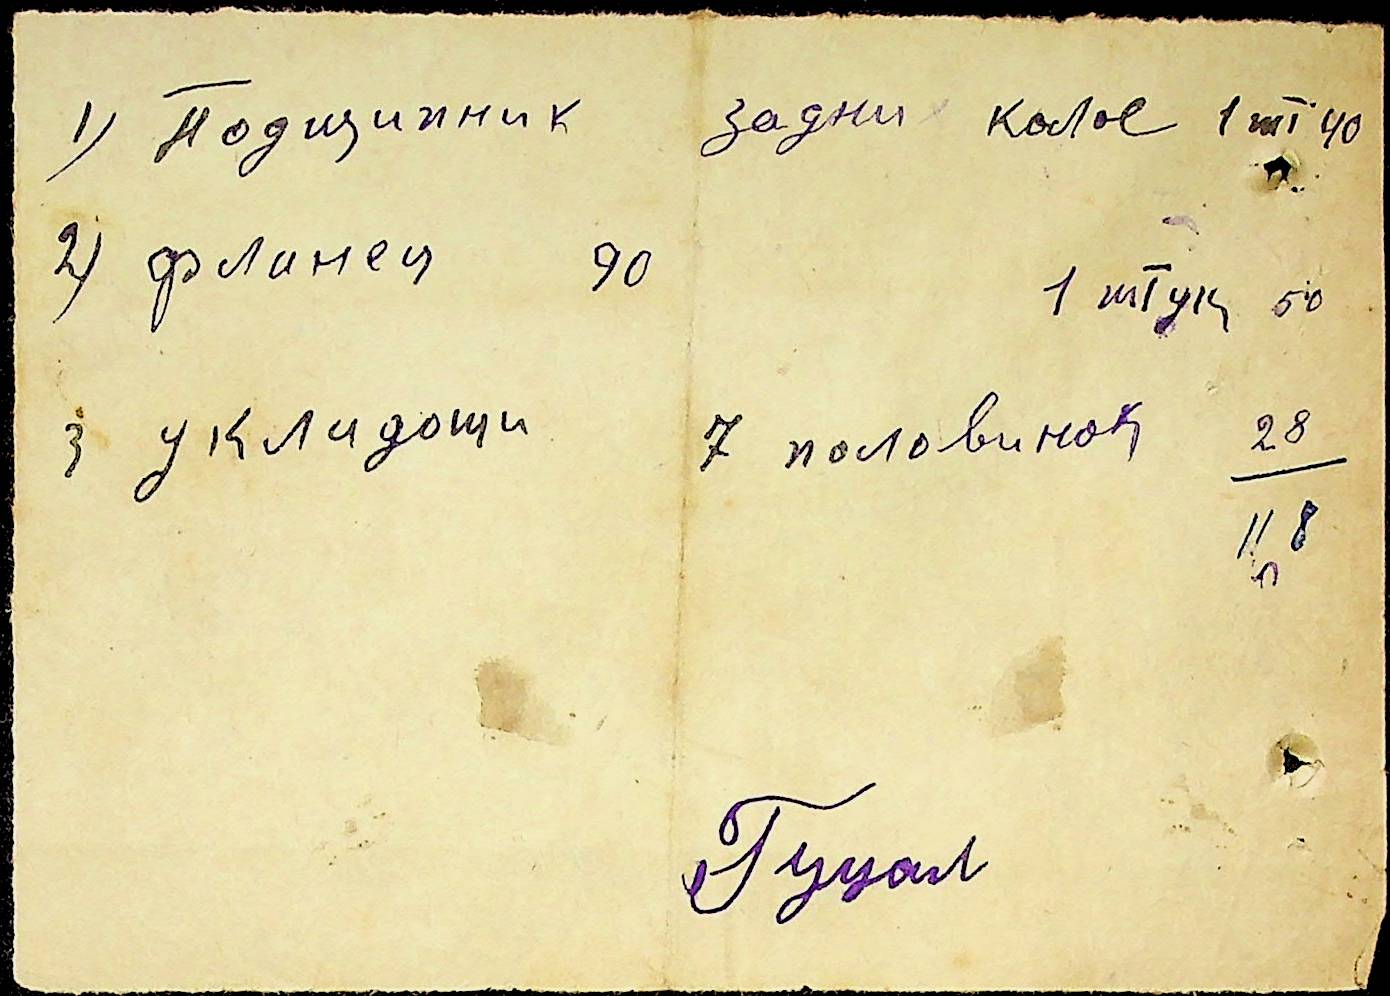 1) Подщипник задни колое 1 шт 40
2) фланец 90 1 штук 50
3 укладощи 7 половинок 28
118
Гуцал